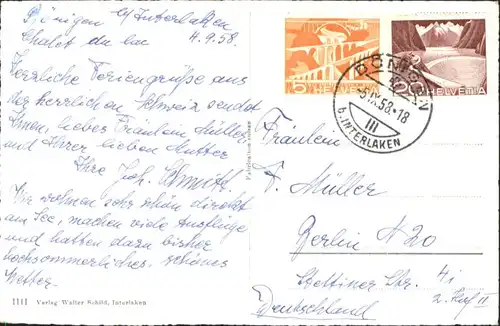 Bönigen b/Interlaken
Chalet du lac 4.9.58.
Herzliche Feriengrüße aus
der herrlichen Schweiz sendet
Ihnen, lieber Fräulein Müller
und Ihrer lieben Mutter
Ihre Joh. Schmidt
Wir wohnen sehr schön direkt
am See, machen viele Ausflüge
und hatten dazu bisher
hochsommerliches, schönes
Wetter.
1111 Verlag Walter Schild, Interlaken
5 HELVETIA
25 HELVETIA
BÖNIGEN
-5.IX.58-18
III
b. INTERLAKEN
Fräulein
F. Müller
Berlin N20
Stettiner Str. 41
2. Hof II
Deutschland